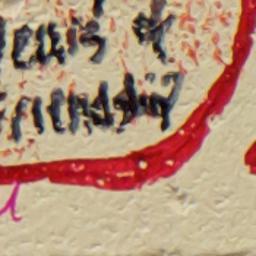 years of
Friendship